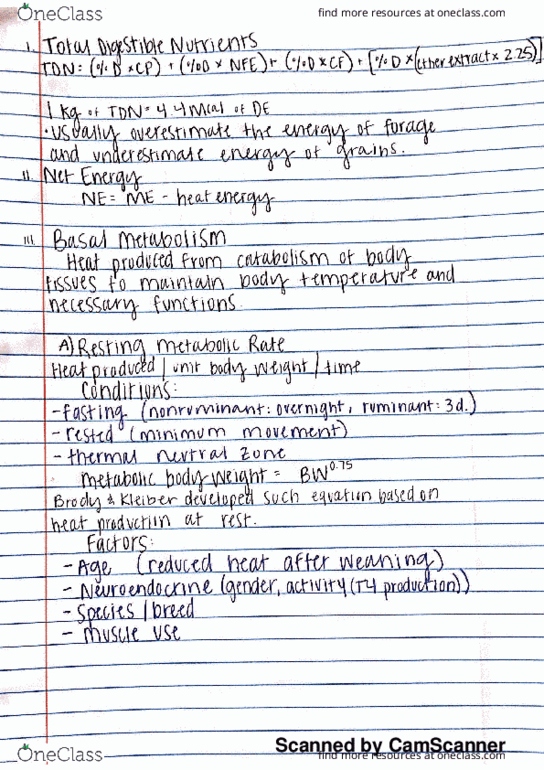 OneClass
find more resources at oneclass.com
I. Total Digestible Nutrients
TDN = (%D × CP) + (%D × NFE) + (%D × CF) + [%D × (ether extract × 2.25)]
1 kg of TDN = 4.4 Mcal of DE
• usually overestimate the energy of forage
and underestimate energy of grains.
II. Net Energy
NE = ME - heat energy
III. Basal Metabolism
Heat produced from catabolism of body
tissues to maintain body temperature and
necessary functions
A) Resting Metabolic Rate
Heat produced / unit body weight / time
Conditions:
- fasting (nonruminant: overnight, ruminant: 3d.)
- rested (minimum movement)
- thermal neutral zone
metabolic body weight = BW^0.75
Brody & Kleiber developed such equation based on
heat production at rest.
Factors:
- Age (reduced heat after weaning)
- Neuroendocrine (gender, activity (T4 production))
- Species / breed
- muscle use
Scanned by CamScanner
OneClass
find more resources at oneclass.com